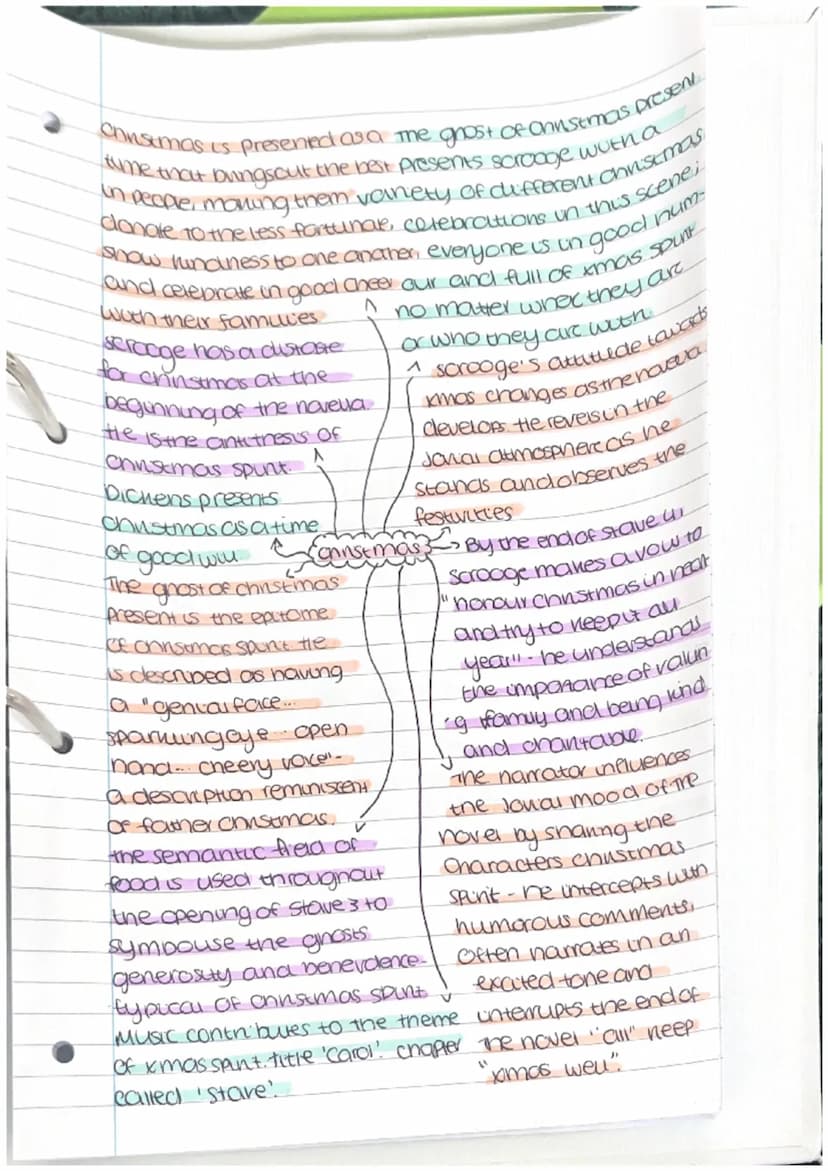 Christmas is presented as a
time that brings out the best
in people, making them
donate to the less fortunate,
show kindness to one another,
and celebrate in good cheer
with their families
The ghost of Christmas present
presents scrooge with a
variety of different christmas
celebrations in this scene;
everyone is in good hum-
our and full of xmas spirit
no matter where they are
or who they are with
scrooge has a distaste
for christmas at the
beginning of the novella.
He is the antithesis of
christmas spirit.
Dickens presents
christmas as a time
of good will
scrooge's attitude towards
xmas changes as the novella
develops. He revels in the
jovial atmosphere as he
stands and observes the
festivities
christmas
By the end of stave 4,
scrooge makes a vow to
"honour christmas in heart
and try to keep it all
year" - he understands
the importance of valuin
g family and being kind
and charitable.
The ghost of christmas
present is the epitome
of christmas spirit. He
is described as having
a "genial face...
sparkling eye... open
hand... cheery voice" -
a description reminiscent
of father christmas.
the semantic field of
food is used throughout
the opening of stave 3 to
symbolise the ghosts
generosity and benevolence
typical of christmas spirit
Music contributes to the theme
of xmas spirit. title 'carol'. chapter
called 'stave'.
The narrator influences
the jovial mood of the
novel by sharing the
characters christmas
spirit - he intercepts with
humorous comments,
often narrates in an
excited tone and
interrupts the end of
the novel "all" keep
"xmas well".